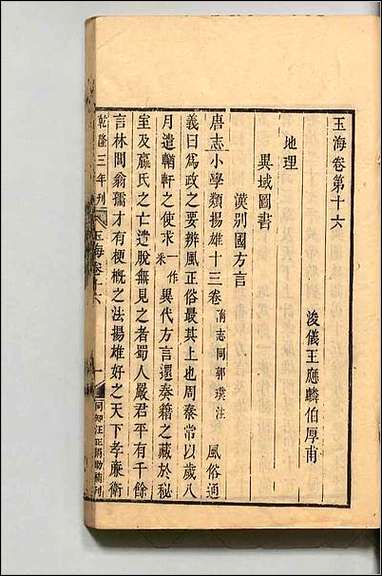 玉海卷第十六
浚儀王應麟伯厚甫
地理
異域圖書
漢別國方言
唐志小學類揚雄十三卷隋志同郭璞注 風俗通
義曰爲政之要辨風正俗最其上也周秦常以歲八
月遣輶軒之使求一作采異代方言還奏籍之藏於秘
室及嬴氏之亡遺脫無見之者蜀人嚴君平有千餘
言林閭翁孺才有梗概之法揚雄好之天下孝廉衛
乾隆三年刊 玉海卷十六 一